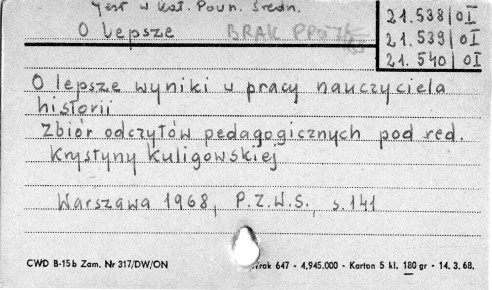 Jest w Kat. Poun. Średn.
O lepsze BRAK
21.538/OI
21.539/OI
21.540/OI
O lepsze wyniki w pracy nauczyciela
historii
Zbiór odczytów pedagogicznych pod red.
Krystyny Kuligowskiej
Warszawa 1968, P.Z.W.S., s.141
CWD B-15b Zam. Nr 317/DW/ON rak 647 - 4,945.000 - Karton 5 kl. 180 gr - 14. 3. 68.